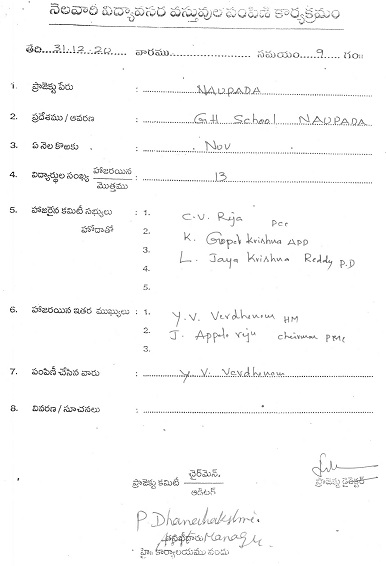 నెలవారీ విద్యావసర వస్తువుల పంపిణీ కార్యక్రమం
తేది: 31.12.20 వారము సమయం: 9 గం॥
1. ప్రాజెక్టు పేరు : NAUPADA
2. ప్రదేశము / ఆవరణ : GH School NAUPADA
3. ఏ నెల కొఱకు : Nov
4. విద్యార్థుల సంఖ్య హాజరయిన / మొత్తము : 13
5. హాజరైన కమిటీ సభ్యులు : 1. C.V. Raja PCC
హోదాతో 2. K. Gopal Krishna APD
3. L. Jaya Krishna Reddy P.D
4.
5.
6. హాజరయిన ఇతర ముఖ్యులు : 1. Y.V. Verdhenam HM
2. J. Appala raju Cheirman PMC
3.
7. పంపిణీ చేసిన వారు : Y. V. Verdhenam
8. వివరణ / సూచనలు :
ప్రాజెక్టు కమిటీ చైర్‌మెన్. / ఆడిటర్
ప్రాజెక్టు డైరెక్టర్
P Dhanalakshmi.
Manager
హై॥ కార్యాలయము నందు